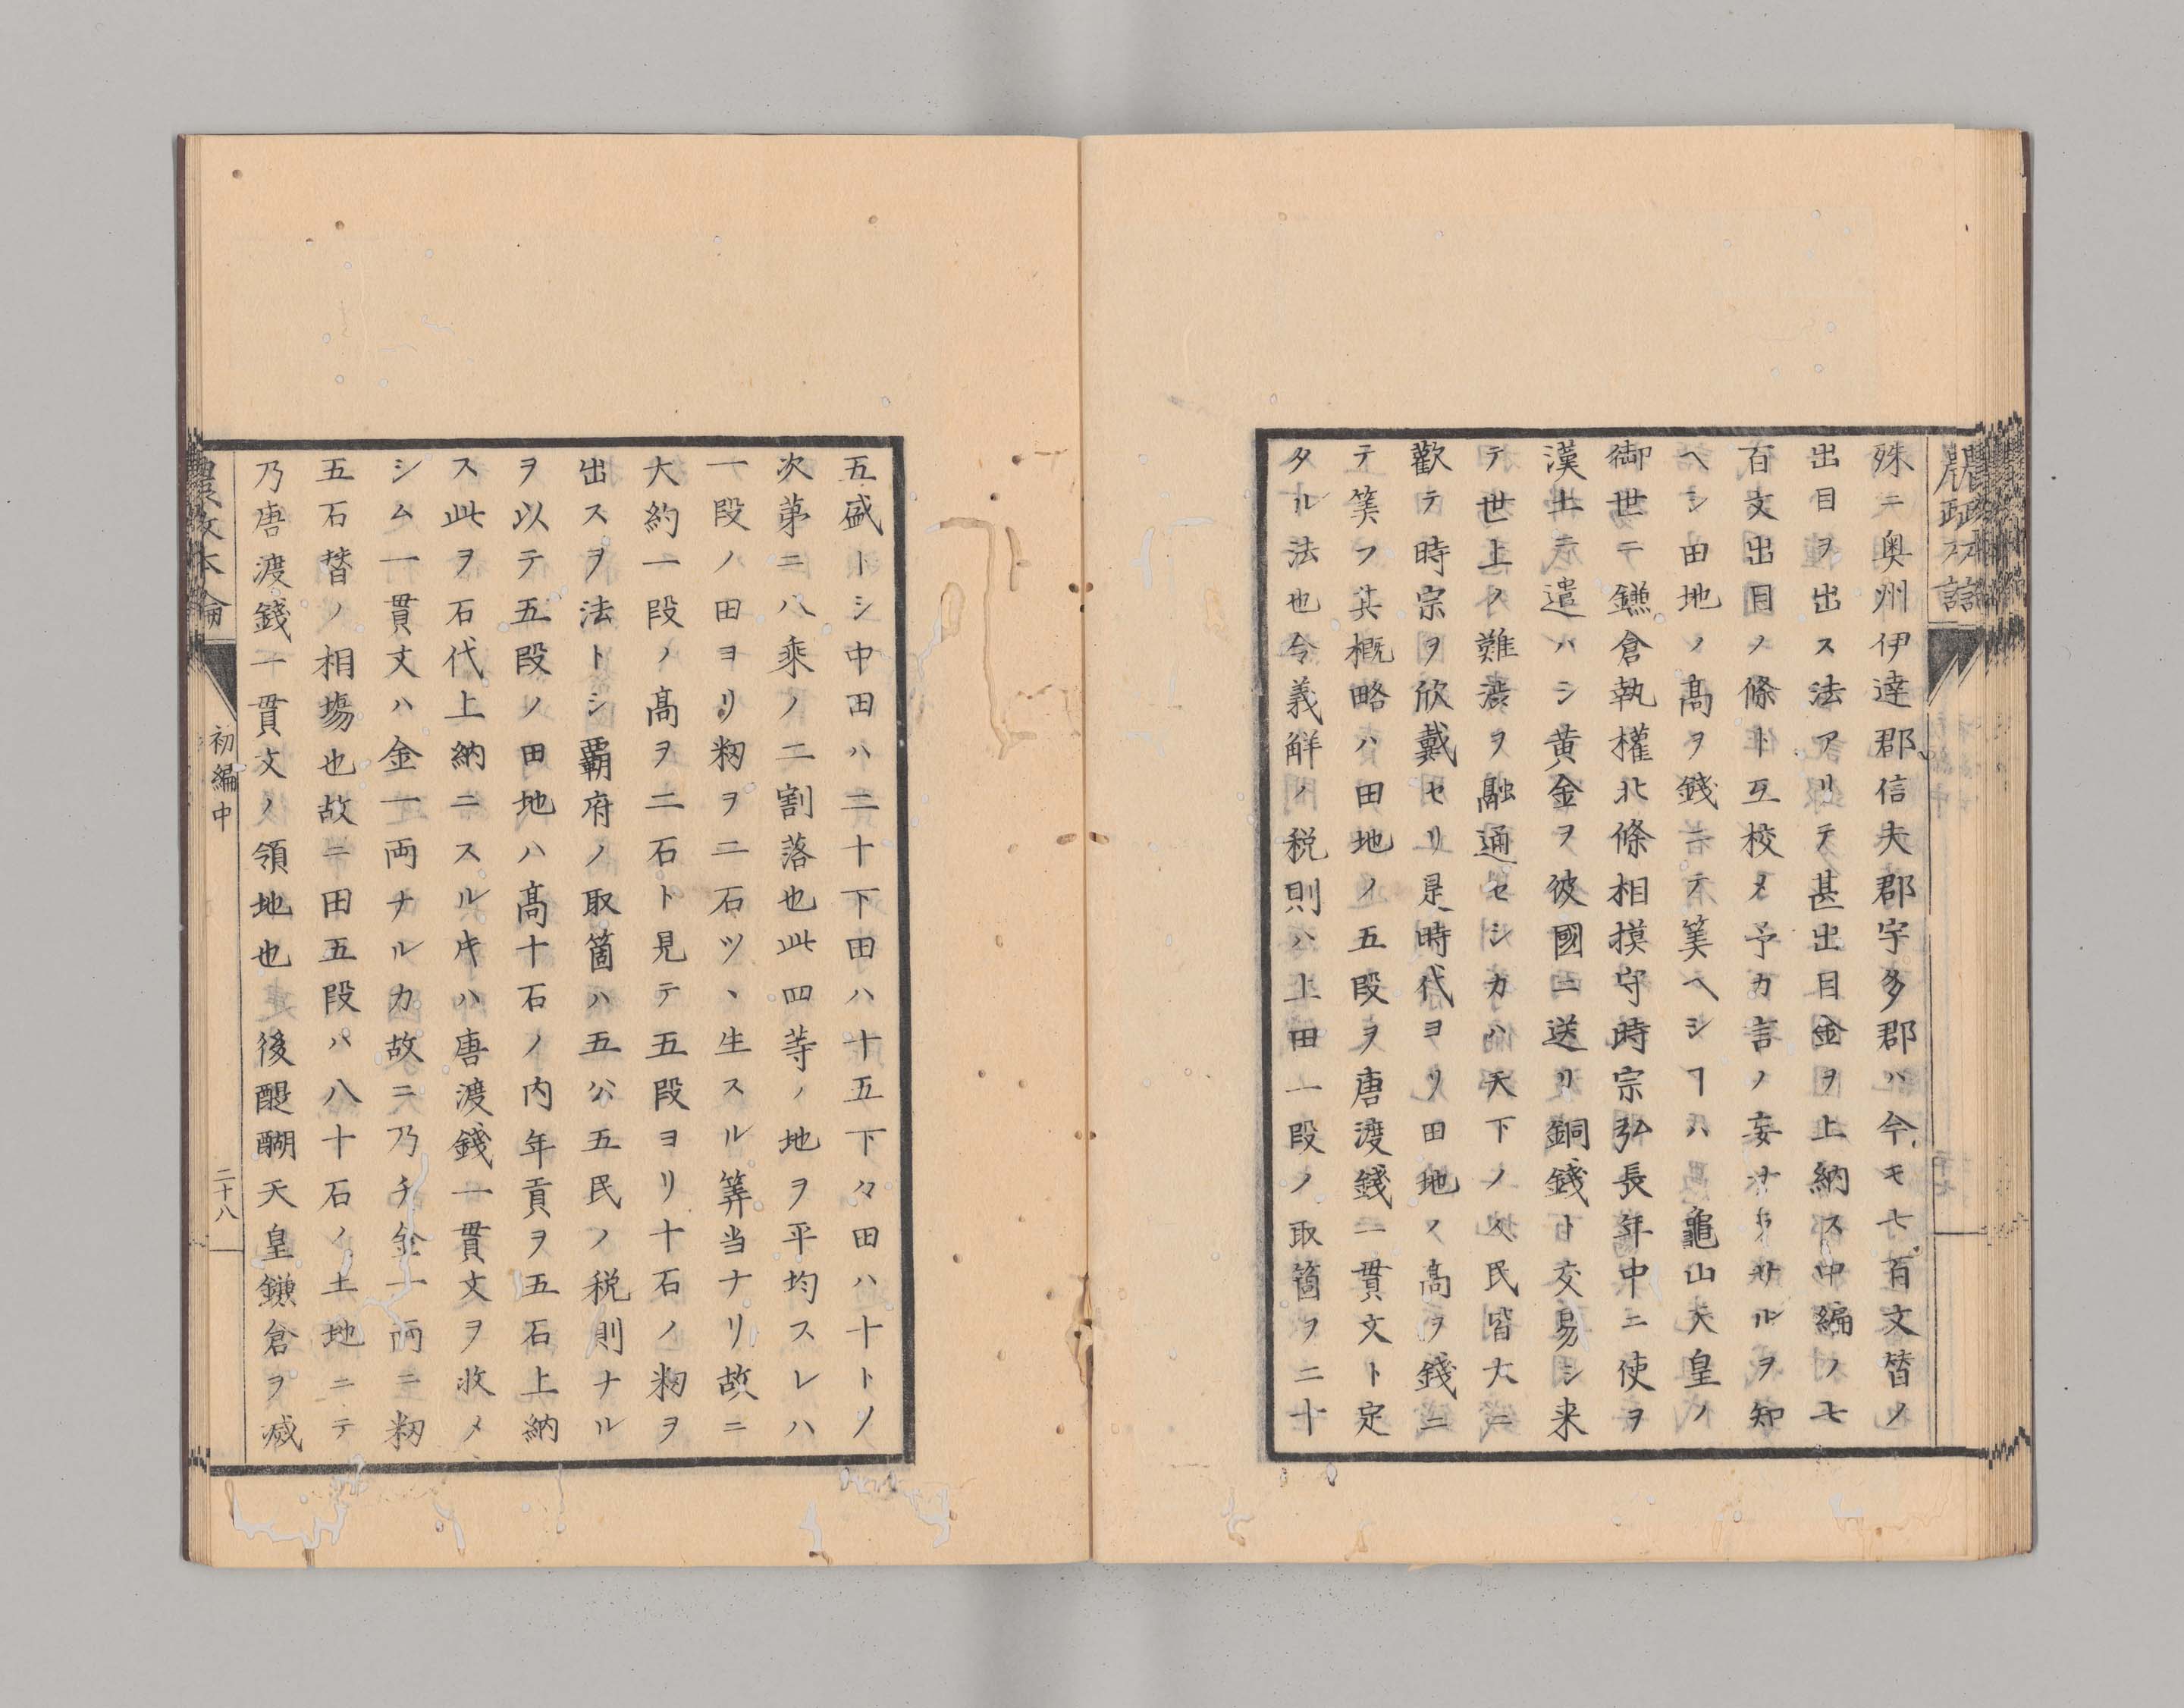 殊ニ奥州伊達郡信夫郡宇多郡ハ今モ七百文替ノ
出目ヲ出ス法アリテ甚出目金ヲ上納ス中編ノ七
百文出目ノ條ト互校メ予カ言ノ妄ナラサルヲ知
ヘシ田地ノ髙ヲ錢ニテ筭ヘシヿハ龜山天皇ノ
御世ニテ鎌倉執權北條相摸守時宗弘長年中ニ使ヲ
漢土ニ遣ハシ黄金ヲ彼國ニ送リ銅錢ト交易シ来
テ世上ノ難澁ヲ融通セシカハ天下ノ人民皆大ニ
歡テ時宗ヲ欣戴セリ是時代ヨリ田地ノ髙ヲ錢ニ
テ筭フ其概略ハ田地ノ五段ヲ唐渡錢一貫文ト定
タル法也令義觧ノ税則ハ上田一段ノ取箇ヲ二十
五盛トシ中田ハ二十下田ハ十五下々田ハ十トノ
次第ニハ乘ノ二割落也此四等ノ地ヲ平均スレハ
一段ノ田ヨリ籾ヲ二石ツヽ生スル筭当ナリ故ニ
大約一段ノ髙ヲ二石ト見テ五段ヨリ十石ノ籾ヲ
出スヲ法トシ覇府ノ取箇ハ五公五民ノ税則ナル
ヲ以テ五段ノ田地ハ髙十石ノ内年貢ヲ五石上納
ス此ヲ石代上納ニスル片ハ唐渡錢一貫文ヲ收メ
シム一貫文ハ金一両ナルカ故ニ乃チ金一両ニ籾
五石替ノ相場也故ニ田五段ハ八十石ノ土地ニテ
乃唐渡錢一貫文ノ領地也後醍醐天皇鎌倉ヲ滅
初編中
二十八